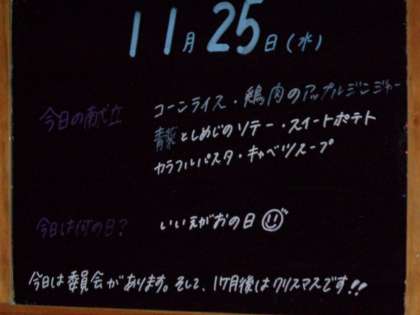 11月25日(水)
今日の献立
コーンライス・鶏肉のアップルジンジャー
青菜としめじのソテー・スイートポテト
カラフルパスタ・キャベツスープ
今日は何の日?
いいえがおの日
今日は委員会があります。そして、1ヶ月後はクリスマスです!!